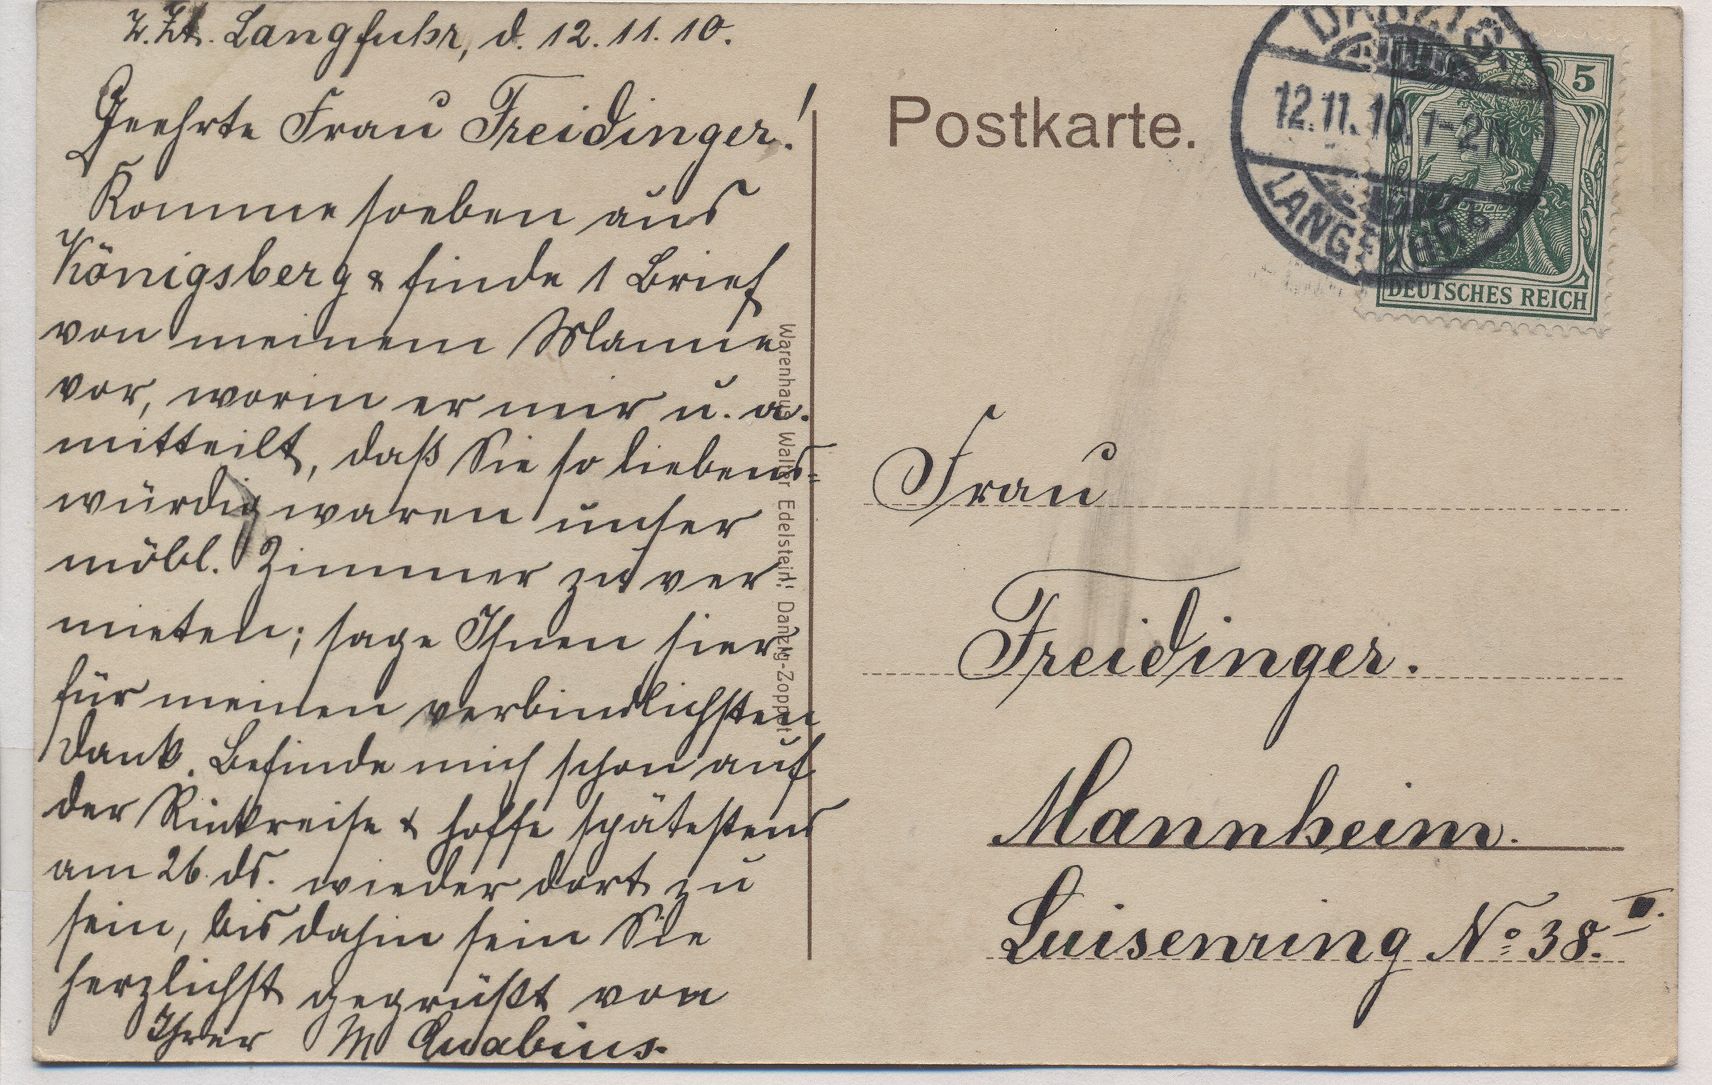 z. Zt. Langfuhr, d. 12.11.10.
Geehrte Frau Freidinger!
Komme soeben aus
Königsberg & finde 1 Brief
von meinem Manne
vor, worin er mir u. a.
mitteilt, daß Sie so liebens=
würdig waren unser
möbl. Zimmer zu ver
mieten; sage Ihnen hier
für meinen verbindlichsten
Dank. Befinde mich schon auf
der Rückreise & hoffe spätestens
am 26. ds. wieder dort zu
sein, bis dahin sein Sie
herzlichst gegrüßt von
Ihrer M Quabius.
Warenhaus Walter Edelstein, Danzig-Zoppot
Postkarte.
DANZIG
12.11.10.1-2N
LANGFUHR
5
DEUTSCHES REICH
Frau
Freidinger.
Mannheim.
Luisenring No 38. II.